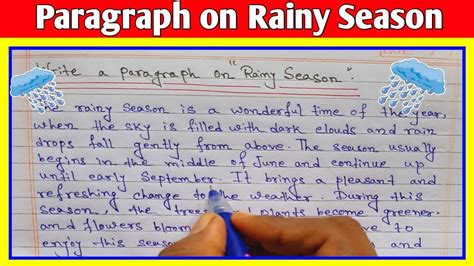 Paragraph on Rainy Season
Write a paragraph on "Rainy Season".
The rainy season is a wonderful time of the year,
when the sky is filled with dark clouds and rain
drops fall gently from above. The season usually
begins in the middle of June and continue up
until early September. It brings a pleasant and
refreshing change to the weather. During this
season, the trees and plants become greener
and flowers bloom to
enjoy this season and